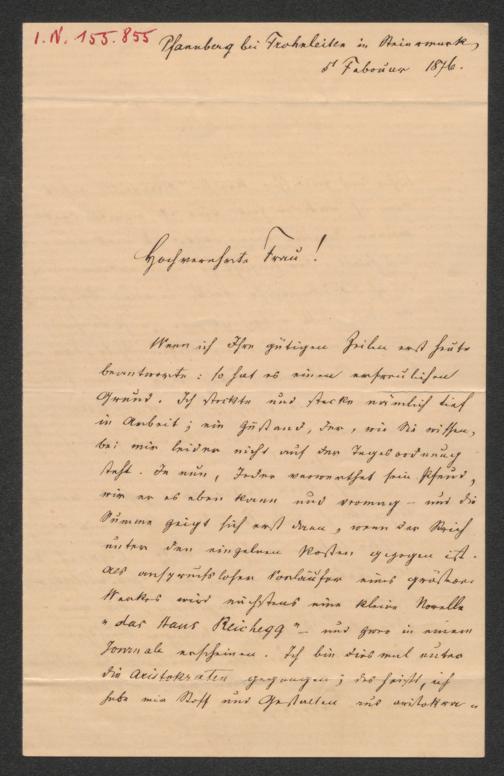 I. N. 155.855
Pfannberg bei Frohnleiten in Steiermark,
5t Februar 1876.
Hochverehrte Frau!
Wenn ich Ihre gütigen Zeilen erst heute
beantworte: so hat es einen erfreulichen
Grund. Ich steckte und stecke nämlich tief
in Arbeit; ein Zustand, der, wie Sie wissen,
bei mir leider nicht auf der Tagesordnung
steht. Je nun, Jeder verwerthet sein Pfund,
wie er es eben kann und vermag – und die
Summe zeigt sich erst dann, wenn der Strich
unter den einzelnen Posten gezogen ist.
Als anspruchsloser Vorläufer eines größeren
Werkes wird nächstens eine kleine Novelle
"das Haus Reichegg" – und zwar in einem
Journale erscheinen. Ich bin diesmal unter
die Aristokraten gegangen; das heißt, ich
habe mir Stoff und Gestalten aus aristokra-